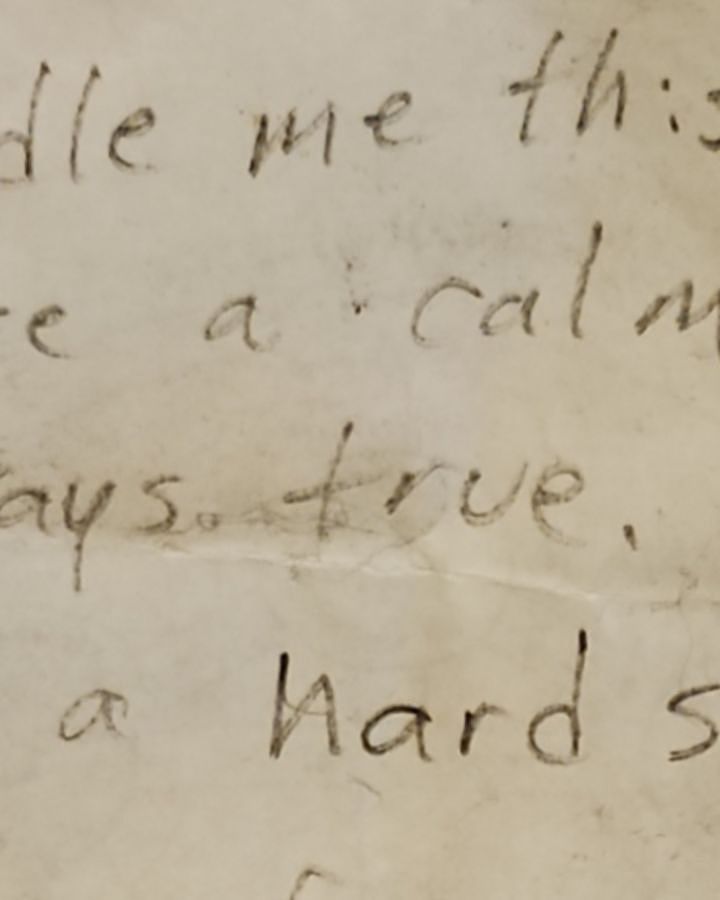 dle me this
re a calm
ays true.
a hard s